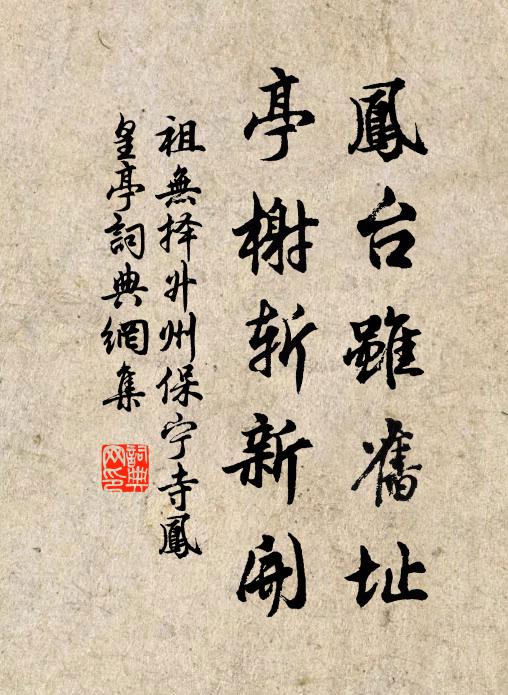 鳳台雖舊址
亭榭斬新開
祖無择升州保宁寺鳳
皇亭詞典網集
詞典网印